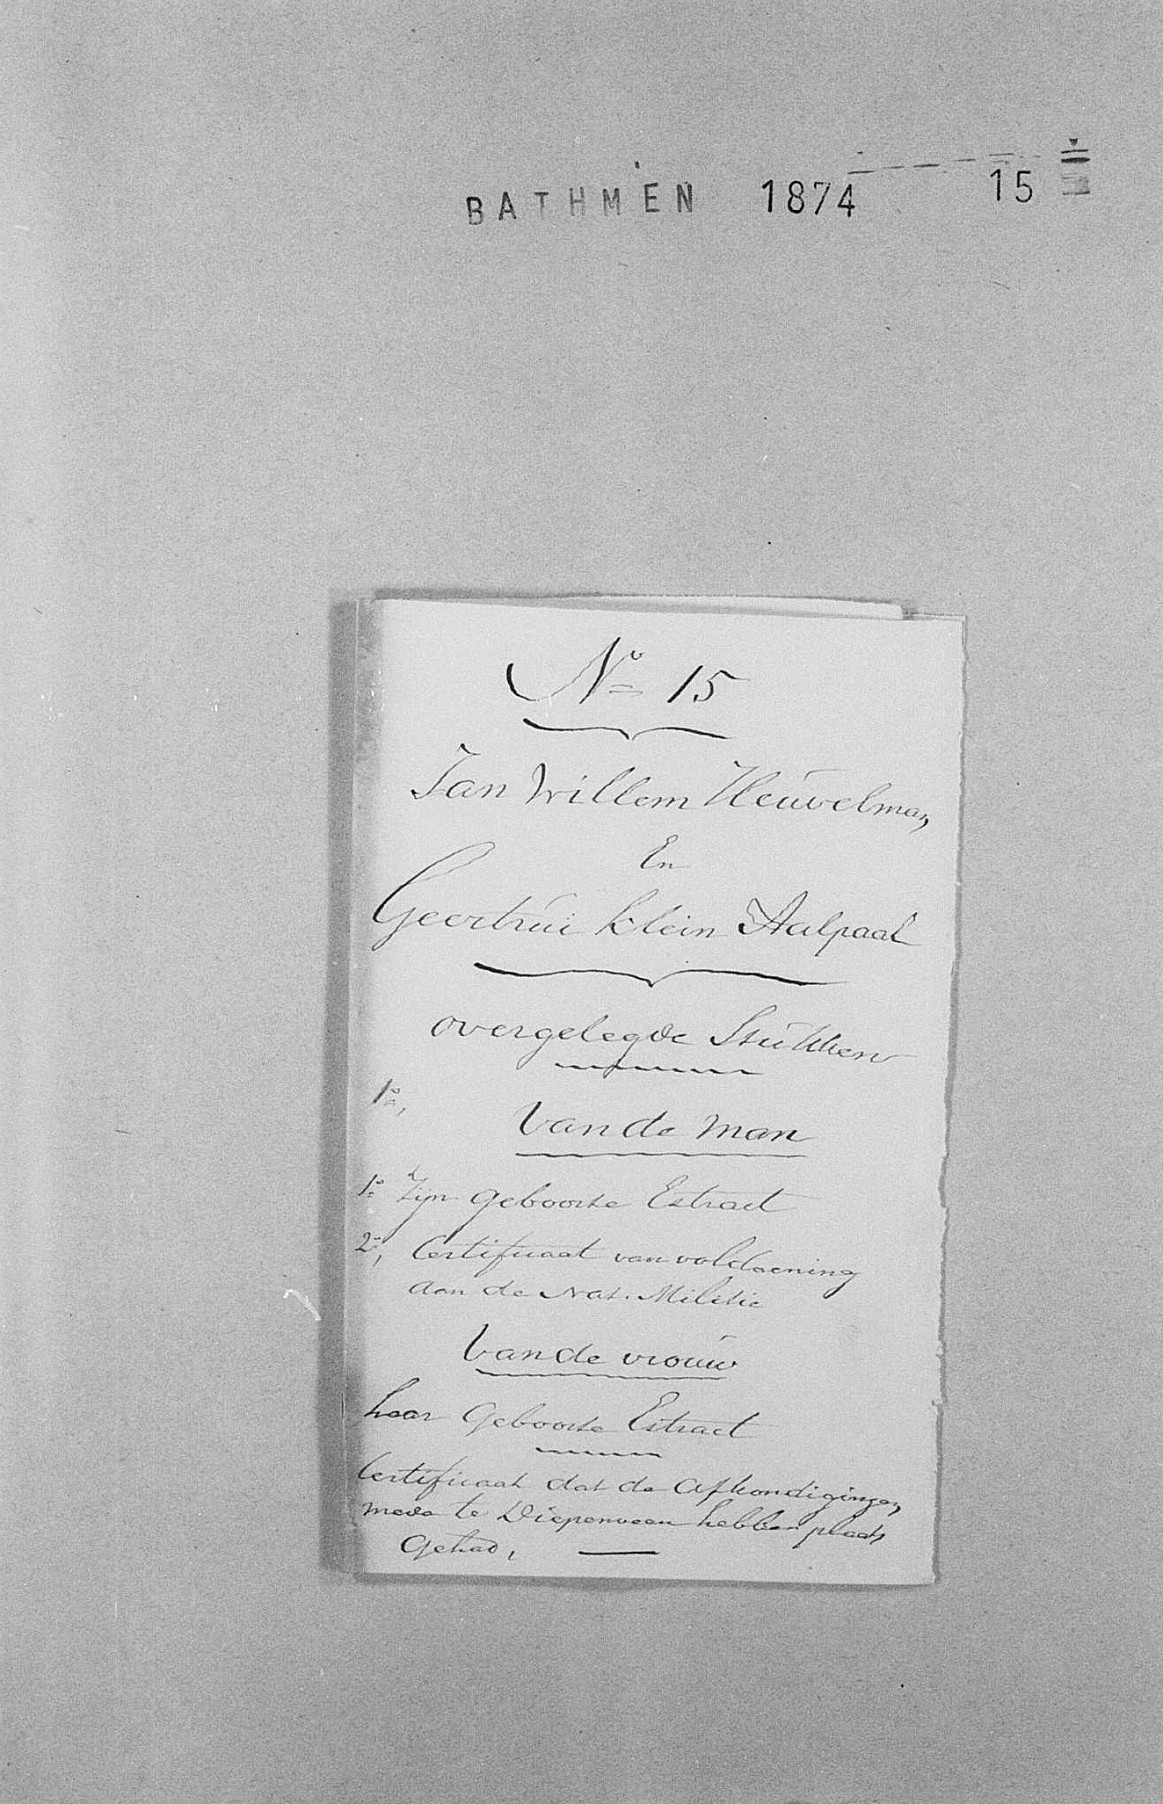 BATHMEN 1874 15
No 15
Jan Willem Heuvelman
En
Geertrui klein Aalpaal
overgelegde Stukken
1o,
Van de man
1o Zijn geboorte Extract
2o, Certificaat van voldoening
aan de Nat. Militie
Van de vrouw
haar Geboorte Extract
Certificaat dat de afkondigingen
mede te Diepenveen hebben plaats
Gehad,